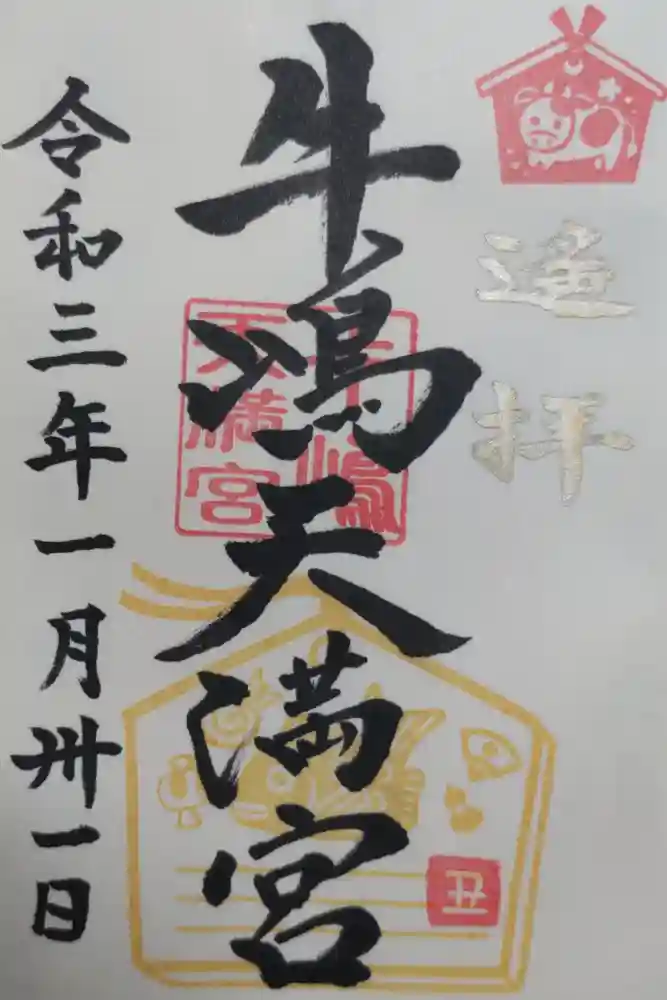 遥拝
牛嶋天満宮
牛嶋
天満宮
丑
令和三年一月卅一日